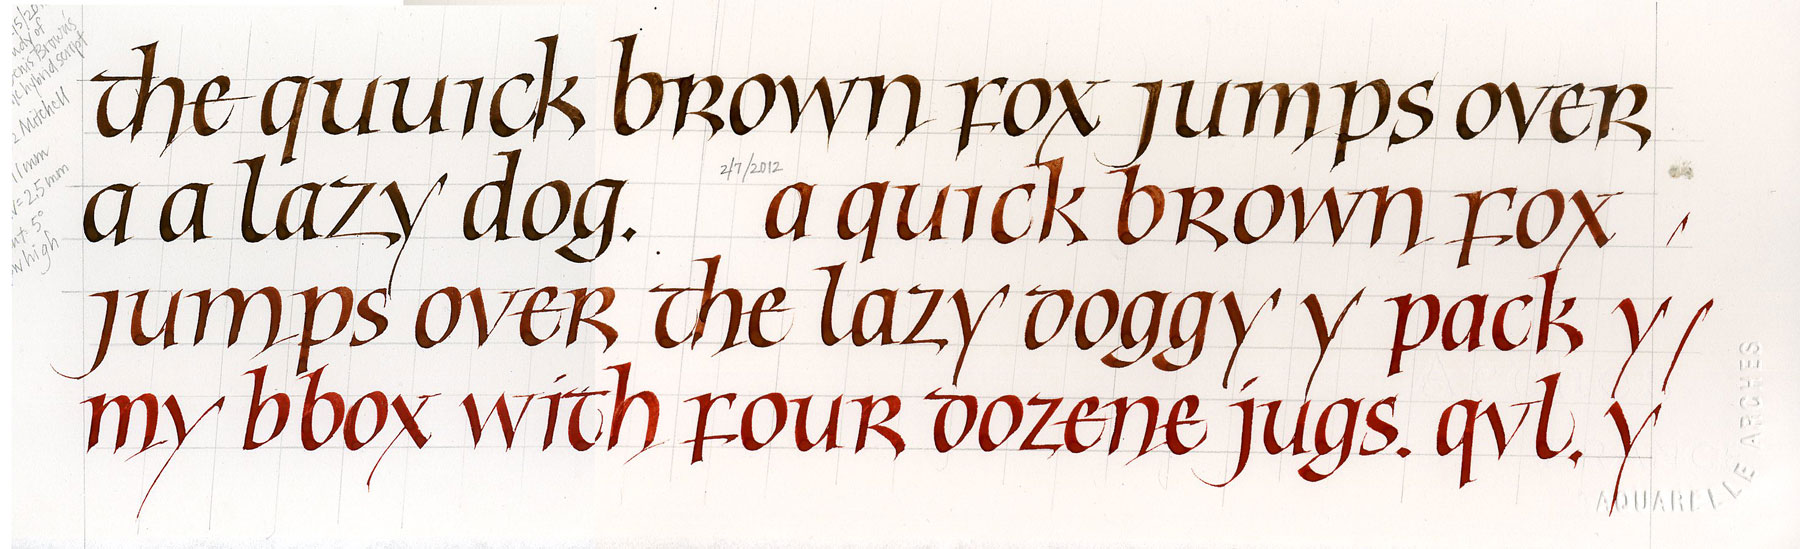 Denis Brown's
hybrid script
2 Mitchell
2.5 mm
5°
high
the quuick brown fox jumps over
a a lazy dog. 2/7/2012 a quick brown fox
jumps over the lazy doggy y pack y
my bbox with four dozene jugs. qvl. y
AQUARELLE ARCHES